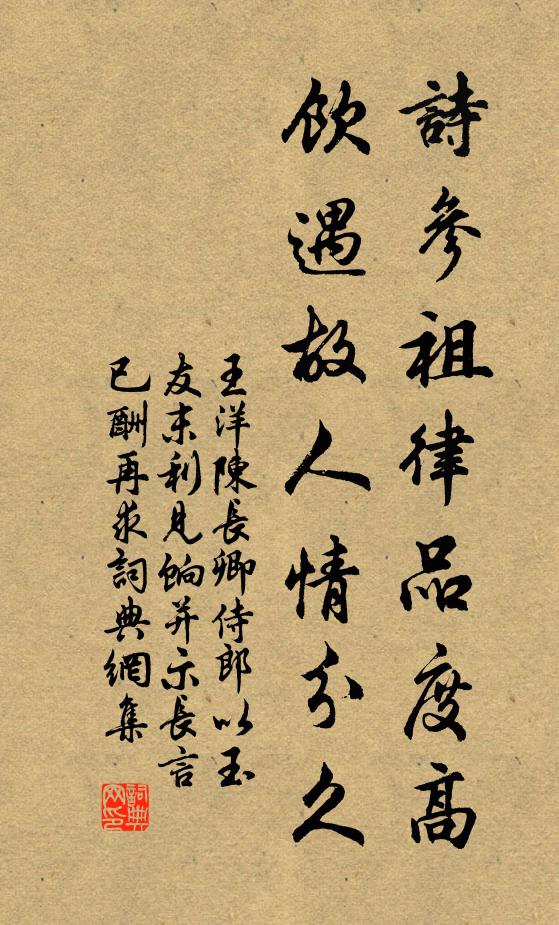 詩參祖律品度高
飲遇故人情分久
王洋陳長卿侍郎以玉
友末利見餉并示長言
已酬再求詞典網集
詞典网印